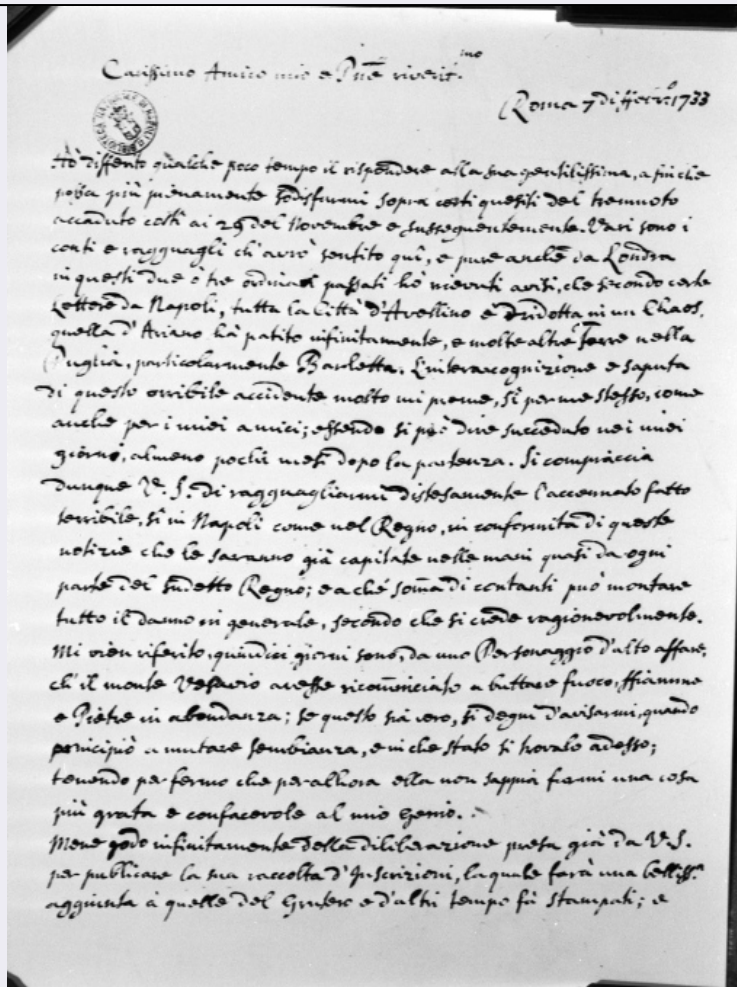 Carissimo Amico mio e Pñe riverit.mo
Roma 7 di 1733
Hò differito qualche poco tempo il rispondere alla sua gentilissima, a fin che
possa più pienamente sodisfarmi sopra certi quesiti del tremuoto
accaduto costì ai 29 del Novembre e susseguentemente. Vari sono i
conti e ragguagli ch'avrò sentito quì, e pure anche da Londra
in questi due ò tre ordinari passati hò ricevuti avisi, che secondo certe
Lettere da Napoli, tutta la Città d'Avellino è ridotta in un Chaos,
quella d'Ariano hà patito infinitamente, e molte altre Terre nella
Puglia, particolarmente Barletta. L'intera cognizione e saputa
di questo orribile accidente molto mi preme, sì per me stesso, come
anche per i miei amici; essendo si può dire succeduto nei miei
giorni, almeno pochi mesi dopo la partenza. Si compiaccia
dunque V. S. di ragguagliarmi distesamente l'accennato fatto
terribile, sì in Napoli come nel Regno, in conformità di queste
notizie che le saranno già capitate nelle mani quasi da ogni
parte del sudetto Regno; e a ché som̃a di contanti può montare
tutto il danno in generale, secondo che si crede ragionevolmente.
Mi vien riferito, quindici giorni sono, da uno Personaggio d'alto affare,
ch'il monte Vesuvio avesse ricom̃inciato a buttare fuoco, ffiamme
e Pietre in abondanza; se questo sia vero, si degni d'avisarmi, quando
principiò a mutare sembianza, e in che stato si trovalo adesso;
tenendo per fermo che per alhora ella non sappia farmi una cosa
più grata e confacevole al mio Genio.
Mene godo infinitamente della diliberazione presa già da V. S.
per publicare la sua raccolta d'Inscrizioni, la quale farà una belliss.a
aggiunta à quelle del Grutero e d'altri tempo fà stampati; e